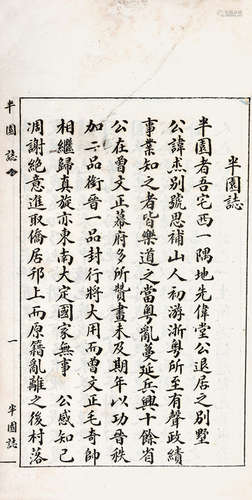 半園誌
半園者吾宅西一隅地先偉堂公退居之別墅
公諱杰別號思補山人初游浙粤所至有聲政績
事業知之者皆樂道之當粤亂蔓延兵興十餘省
公在曾文正幕府多所贊畫未及期年以功晉秩
加二品銜晉一品封行將大用而曾文正毛奇帥
相繼歸真旋亦東南大定國家無事 公感知己
凋謝絶意進取僑居邗上而原籍亂離之後村落
半園誌 一 半園誌